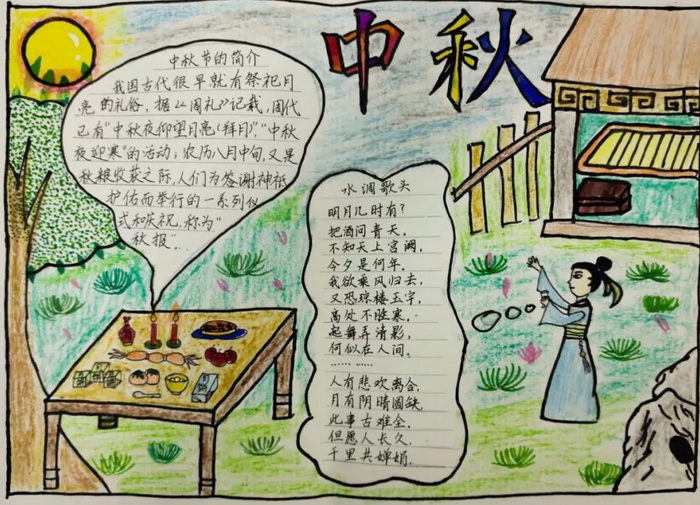 中秋
中秋节的简介
我国古代很早就有祭祀月
亮的礼俗，据《周礼》记载，周代
已有"中秋夜仰望月亮（拜月）"，"中秋
夜迎寒"的活动；农历八月中旬，又是
秋粮收获之际，人们为答谢神祇
护佑而举行的一系列仪
式和庆祝，称为"
秋报"。
水调歌头
明月几时有？
把酒问青天，
不知天上宫阙，
今夕是何年。
我欲乘风归去，
又恐琼楼玉宇，
高处不胜寒，
起舞弄清影，
何似在人间。
…… ……
人有悲欢离合，
月有阴晴圆缺，
此事古难全，
但愿人长久，
千里共婵娟。